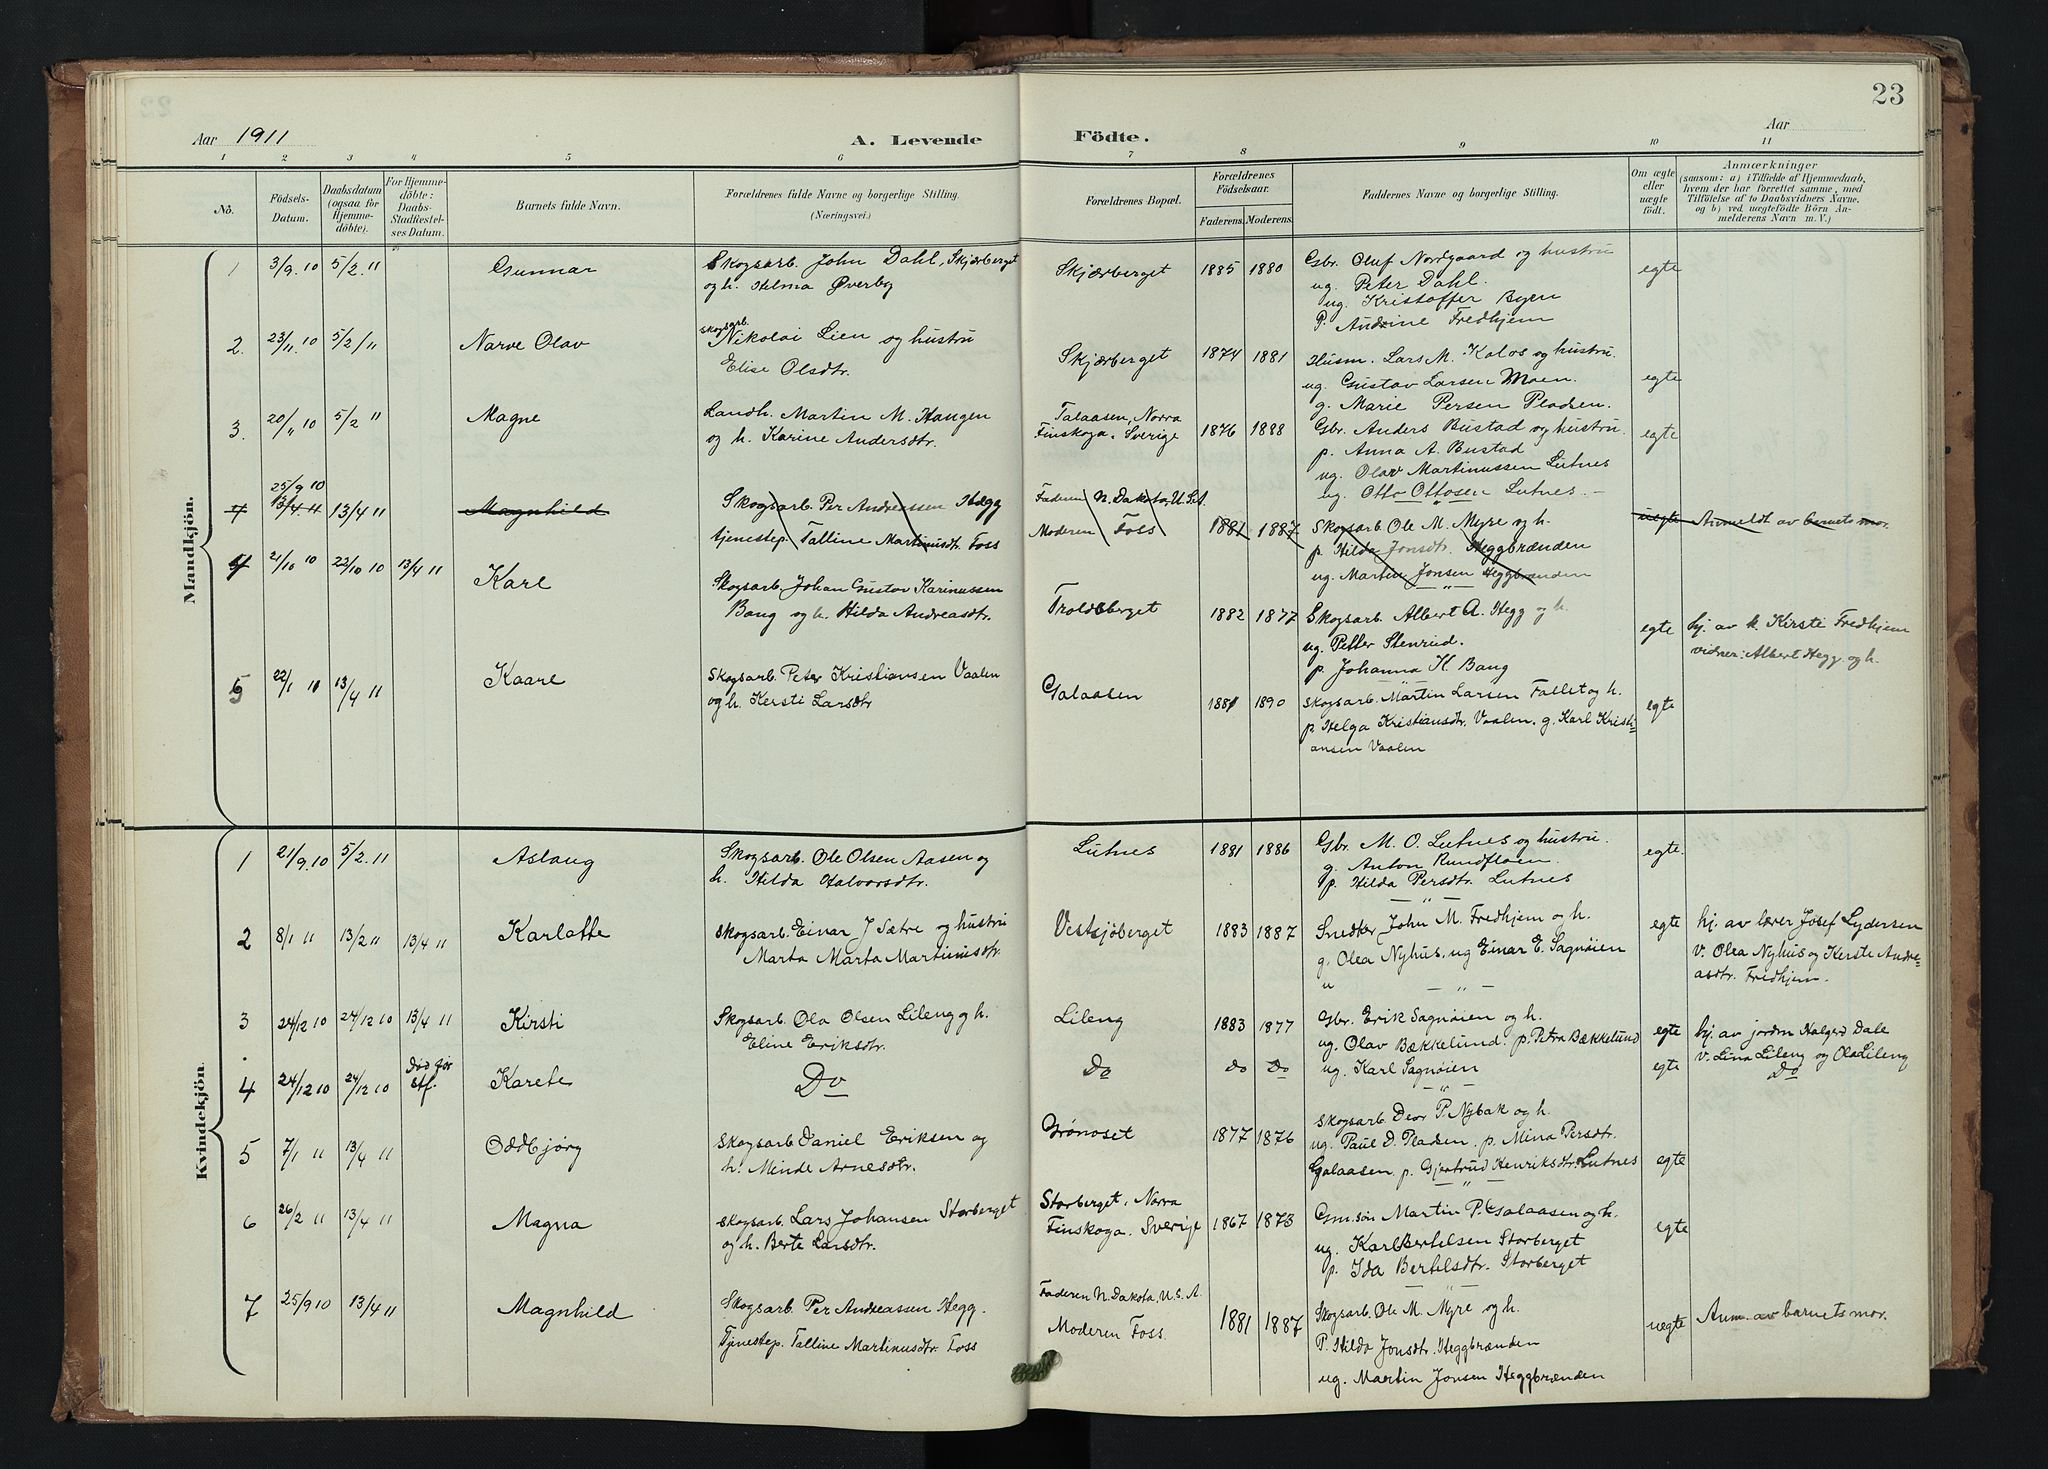 23
Aar 1911 A. Levende Födte. Aar
1 2 3 4 5 6 7 8 9 10 11
No. Födsels-Datum. Daabsdatum (ogsaa for Hjemmedöbte). For Hjemmedöbte: Daabs-Stadfæstelses Datum. Barnets fulde Navn. Forældrenes fulde Navne og borgerlige Stilling. (Næringsvei.) Forældrenes Bopæl. Forældrenes Födselsaar. Faderens. Moderens. Faddernes Navne og borgerlige Stilling. Om ægte eller uægte födt. Anmærkninger (saasom: a) i Tilfælde af Hjemmedaab, hvem der har forrettet samme, med Tilföielse af to Daabsvidners Navne, og b) ved uægtefödte Börn Anmelderens Navn m. V.)
Mandkjön.
1 3/9 10 5/2 11 Gunnar Skogsarb. John Dahl, Skjærberget Skjærberget 1885 1880 Gbr. Oluf Nordgaard og hustru egte
og h. Helma Øverby ug. Peter Dahl.
ug. Kristoffer Byen
P. Andrine Fredhjem
2. 23/11. 10 5/2 11 Narve Olav skogsarb. Nikolai Lien og hustru Skjærberget 1874 1881 Husm. Lars M. Kolos og hustru. egte
Elise Olsdtr. ug. Gustav Larsen Moen.
g. Marie Persen Pladsen.
3. 20/11 10 5/2 11 Magne Landh. Martin M. Haugen Talaasen, Norra 1876 1888 Gbr. Anders Bustad og hustru. egte
og h. Karine Andersdtr. Finskoga. Sverige p. Anna A. Bustad
ug. Olav Martinussen Lutnes
ug. Otto Ottosen Lutnes. —
25/9 10
4 13/4 11 13/4 11 Magnhild Skogsarb. Per Andreassen Hegg Faderen N. Dakota, U. St. 1881 1887 Skogsarb. Ole M. Myre og h. uegte Anmeldt av barnets mor.
tjenestep. Talline Martinusdtr. Foss Moderen Foss p. Hilda Jonsdtr. Heggbrænden
ug. Martin Jonsen Heggbrænden
4 21/10 10 22/10 10 13/4 11 Karl Skogsarb. Johan Gustav Karinussen Troldsberget 1882 1877 Skogsarb. Albert A. Hegg og h. egte hj. av k. Kirsti Fredhjem
Bang og h. Hilda Andreasdtr. ug. Petter Stenrud. vidner: Albert Hegg og h.
p. Johanna K. Bang
5 22/1 11 13/4 11 Kaare Skogsarb Peter Kristiansen Vaalen Galaasen 1881 1890 Skogsarb. Martin Larsen Fallet og h. egte
og h. Kersti Larsdtr p. Helga Kristiansdtr. Vaalen. g. Karl Kristi=
ansen Vaalen
Kvindekjön.
1 21/9. 10 5/2. 11 Aslaug Skogsarb. Ole Olsen Aasen og Lutnes 1881 1886 Gbr. M. O. Lutnes og hustru. egte.
h. Hilda Halvorsdtr. g. Anton Rundfloen.
p. Hilda Persdtr. Lutnes
2 8/1 11 13/2 11 13/4 11 Karlotte Skogsarb. Einar J Sætre og hustru Vestsjøberget 1883 1887 Snedker John M. Fredhjem og h. egte hj. av lærer Josef Lydersen
Marta Marta Martinusdtr. g. Olea Nyhus, ug Einar E. Sagnøien v. Olea Nyhus og Kerste Andre=
asdtr. Fredhjem.
3 24/12 10 24/12 10 13/4 11 Kirsti Skogsarb. Ola Olsen Lileng og h. Lileng 1883 1877 Gbr. Erik Sagnøien og h. egte hj. av jordm Halgerd Dale
Eline Eriksdtr. ug. Olav Bækkelund. p. Petra Bækkelund v. Lina Lileng og Ola Lileng
4 24/12 10 24/12 10 Død før stf. Karete Do Do Do Do ug. Karl Sagnøien egte Do
5 7/1 11 13/4 11 Oddbjørg Skogsarb. Daniel Eriksen og Grønoset 1877 1876 Skogsarb. Deor P. Nybak og h. egte
h. Minde Arnesdtr. ug. Paul D. Pladsen. p. Mina Persdtr.
Galaasen, p. Gjertrud Henriksdtr. Lutnes
6 26/2 11 13/4 11 Magna Skogsarb. Lars Johansen Storberget Storberget, Norra 1867 1873 Gm.søn Martin P. Galaasen og h. egte
og h. Berte Larsdtr. Finskoga. Sverige ug. Karl Bertelsen Storberget
p. Ida Bertelsdtr. Storberget
7 25/9 10 13/4 11 Magnhild Skogsarb. Per Andreassen Hegg. Faderen N. Dakota, U. S. A. 1881 1887 Skogsarb. Ole M. Myre og h. uegte Anm. av barnets mor.
Tjenestep. Talline Martinusdtr. Foss Moderen Foss. P. Hilda Jonsdtr. Heggbrænden
ug. Martin Jonsen Heggbrænden